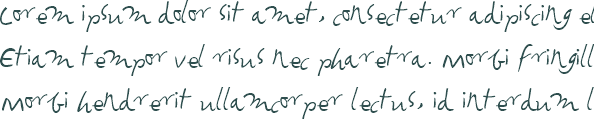 Lorem ipsum dolor sit amet, consectetur adipiscing el
Etiam tempor vel risus nec pharetra. Morbi fringill
Morbi hendrerit ullamcorper lectus, id interdum l